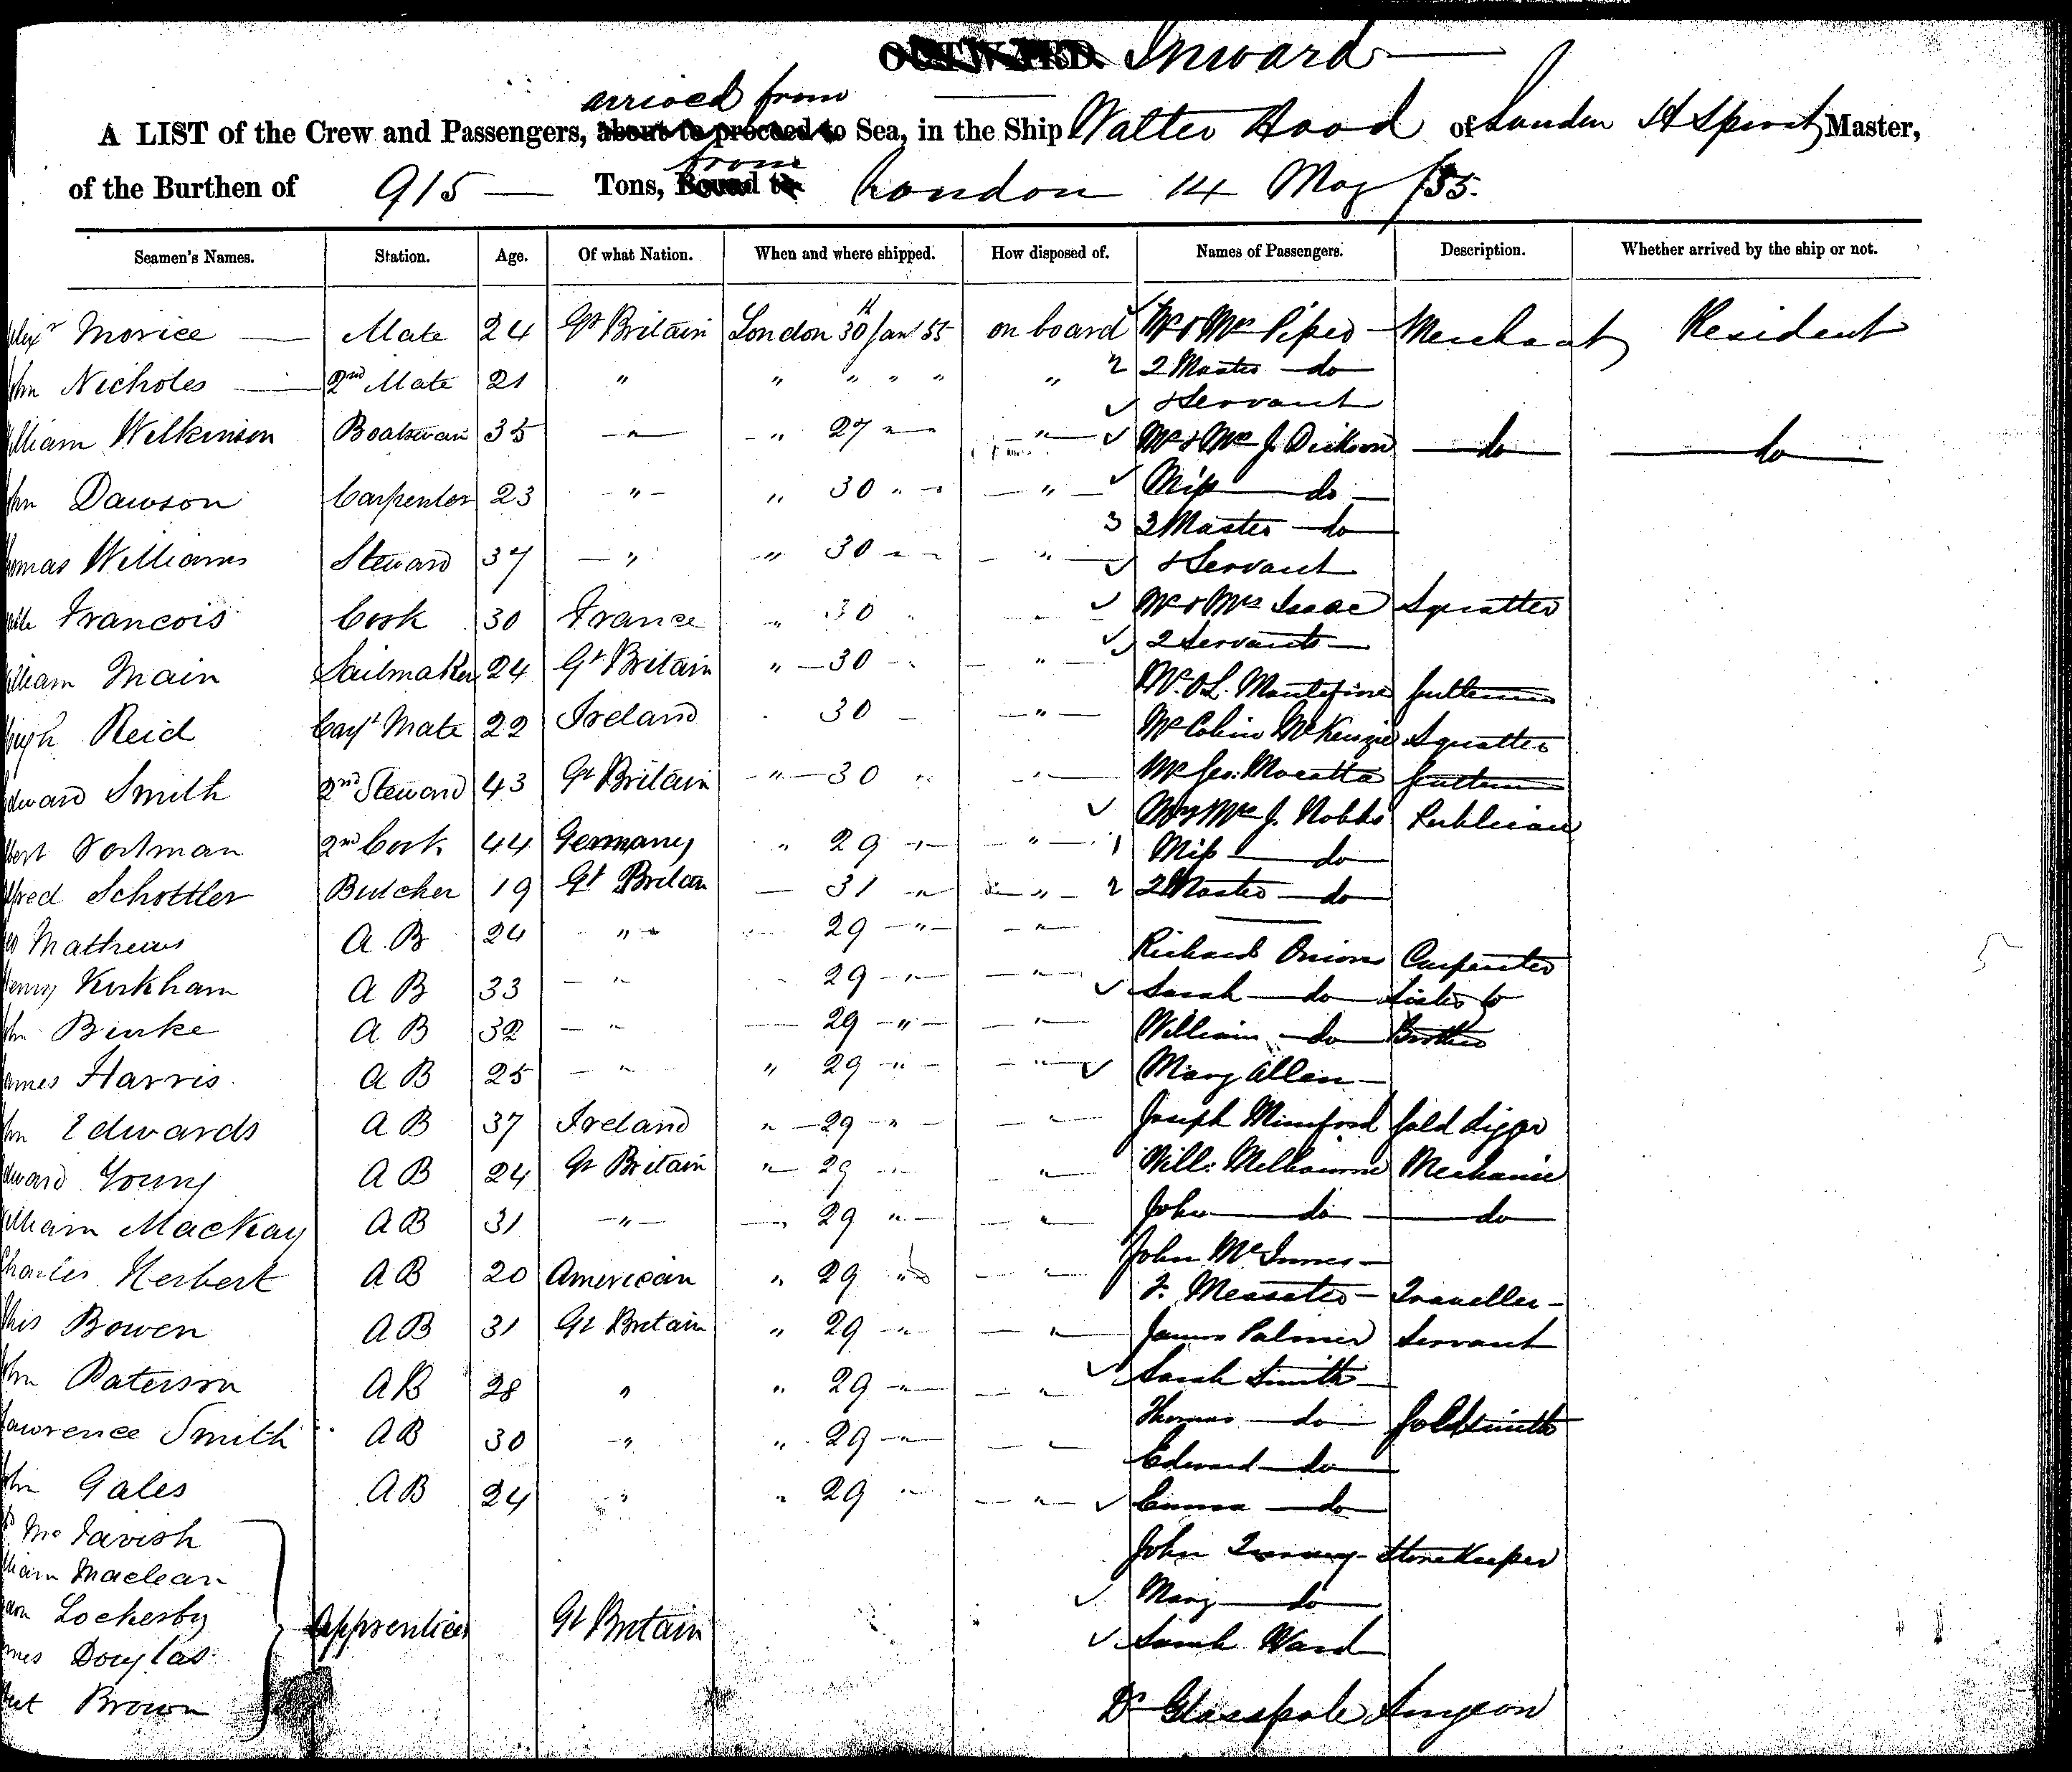 OUTWARD. Inward
arrived from
A LIST of the Crew and Passengers, about to proceed to Sea, in the Ship Walter Hood of London Master,
from
of the Burthen of 915 Tons, Bound to London 14 May /55.
Seamen's Names. Station. Age. Of what Nation. When and where shipped. How disposed of. Names of Passengers. Description. Whether arrived by the ship or not.
Alexr Morice Mate 24 Gt Britain London 30 Jany 55 on board Mr & Mrs Piper Merchant Resident
2 2 Master do
John Nicholes 2nd Mate 21 " " " " " "
& Servant
William Wilkinson Boatswain 35 " " 27 " " Mr & Mrs J. Dickson do do
John Dawson Carpenter 23 " " 30 " " Miss do
3 3 Master do
Thomas Williams Steward 37 " " 30 " " & Servant
Francois Cook 30 France " 30 Mr & Mrs Isaac Squatter
2 Servants
William Main Sailmaker 24 Gt Britain " 30 "
Mr O.L. Montefiore Gentleman
Hugh Reid Carpt Mate 22 Ireland 30 " Mr Colin McKenzie Squatter
Edward Smith 2nd Steward 43 Gt Britain " 30 " Mr Geo: Mocatta Gentleman
Mr & Mrs J. Nobbs Publican
2nd Cook 44 Germany " 29 " " 1 Miss do
Alfred Schottler Butcher 19 Gt Britain 31 " " 2 2 Master do
Geo Mathews A.B 24 " 29 " "
Richard Onions Carpenter
Henry Kirkham A B 33 " 29 " " Sarah do Sister to
John Binke A B 32 " 29 " " William do Brother
James Harris A B 25 " " 29 " " Mary Allen
John Edwards A B 37 Ireland " 29 " " Joseph Mumford Gold digger
Edward Young A B 24 Gt Britain " 29 " " Will: Melbourne Mechanic
William Mackay A B 31 " " 29 " " John do do
John McInnes
Charles Herbert A B 20 American " 29 " "
F. Messiter Traveller
Bowen A B 31 Gt Britain " 29 " " James Palmer Servant
John Paterson A B 28 " " 29 " " Sarah Smith
Lawrence Smith A B 30 " " 29 " " Thomas do Goldsmith
Edward do
John Gales A B 24 " " 29 " " Emma do
McTavish
John Storekeeper
William Maclean
Mary do
Lockerby Apprentices Gt Britain
Sarah Ward
James Douglas
Brown Dr Glasspole Surgeon